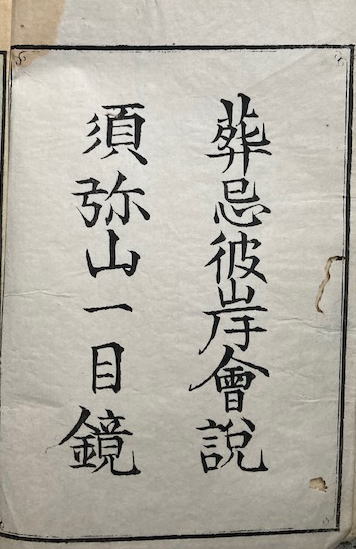 葬忌彼岸會說
須弥山一目鏡